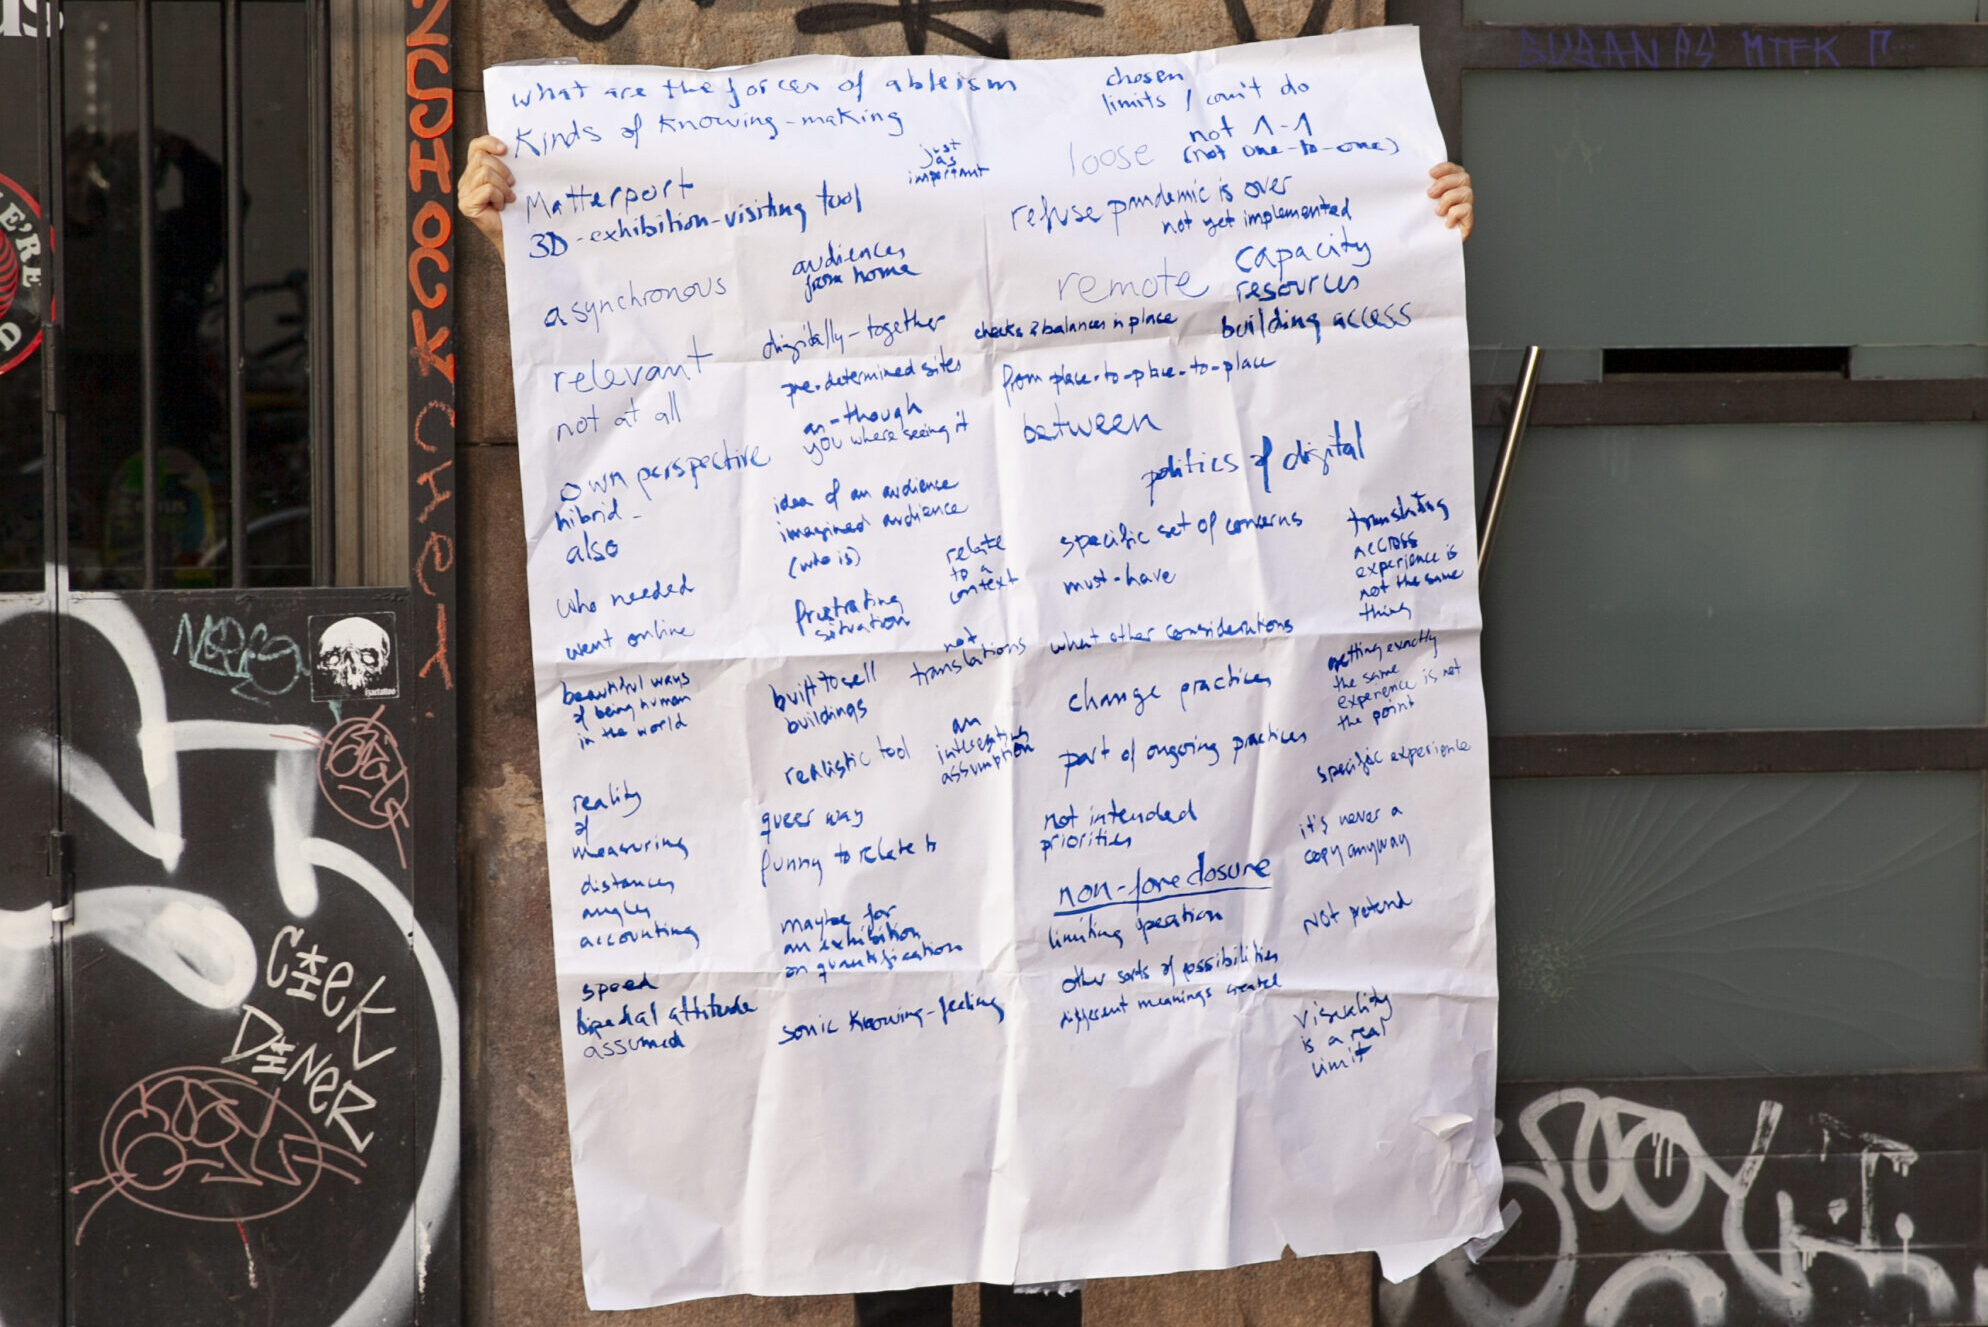 what are the forces of ableism
Kinds of knowing-making
Matterport
3D-exhibition-visiting tool
just
as
important
asynchronous
audiences
from home
relevant
not at all
digitally-together
pre-determined sites
as-though
you where seeing it
own perspective
hibrid-
also
idea of an audience
imagined audience
(who is)
relate
to a
context
who needed
went online
frustrating
situation
not
translations
beautiful ways
of being human
in the world
built to sell
buildings
realistic tool
an
interesting
assumption
reality
of
measuring
distances
angles
accounting
queer way
funny to relate to
maybe for
an exhibition
on quantification
speed
bipedal attitude
assumed
sonic knowing-feeling
chosen
limits / can't do
loose
not 1-1
(not one-to-one)
refuse pandemic is over
not yet implemented
remote
capacity
resources
building access
checks & balances in place
from place-to-place-to-place
between
politics of digital
specific set of concerns
must-have
what other considerations
change practices
part of ongoing practices
not intended
priorities
non-foreclosure
limiting operation
other sorts of possibilities
different meanings created
translating
accross
experience is
not the same
thing
getting exactly
the same
experience is not
the point
specific experience
it's never a
copy anyway
NOT pretend
visuality
is a real
limit
E'RE
D
CIEK
DINER